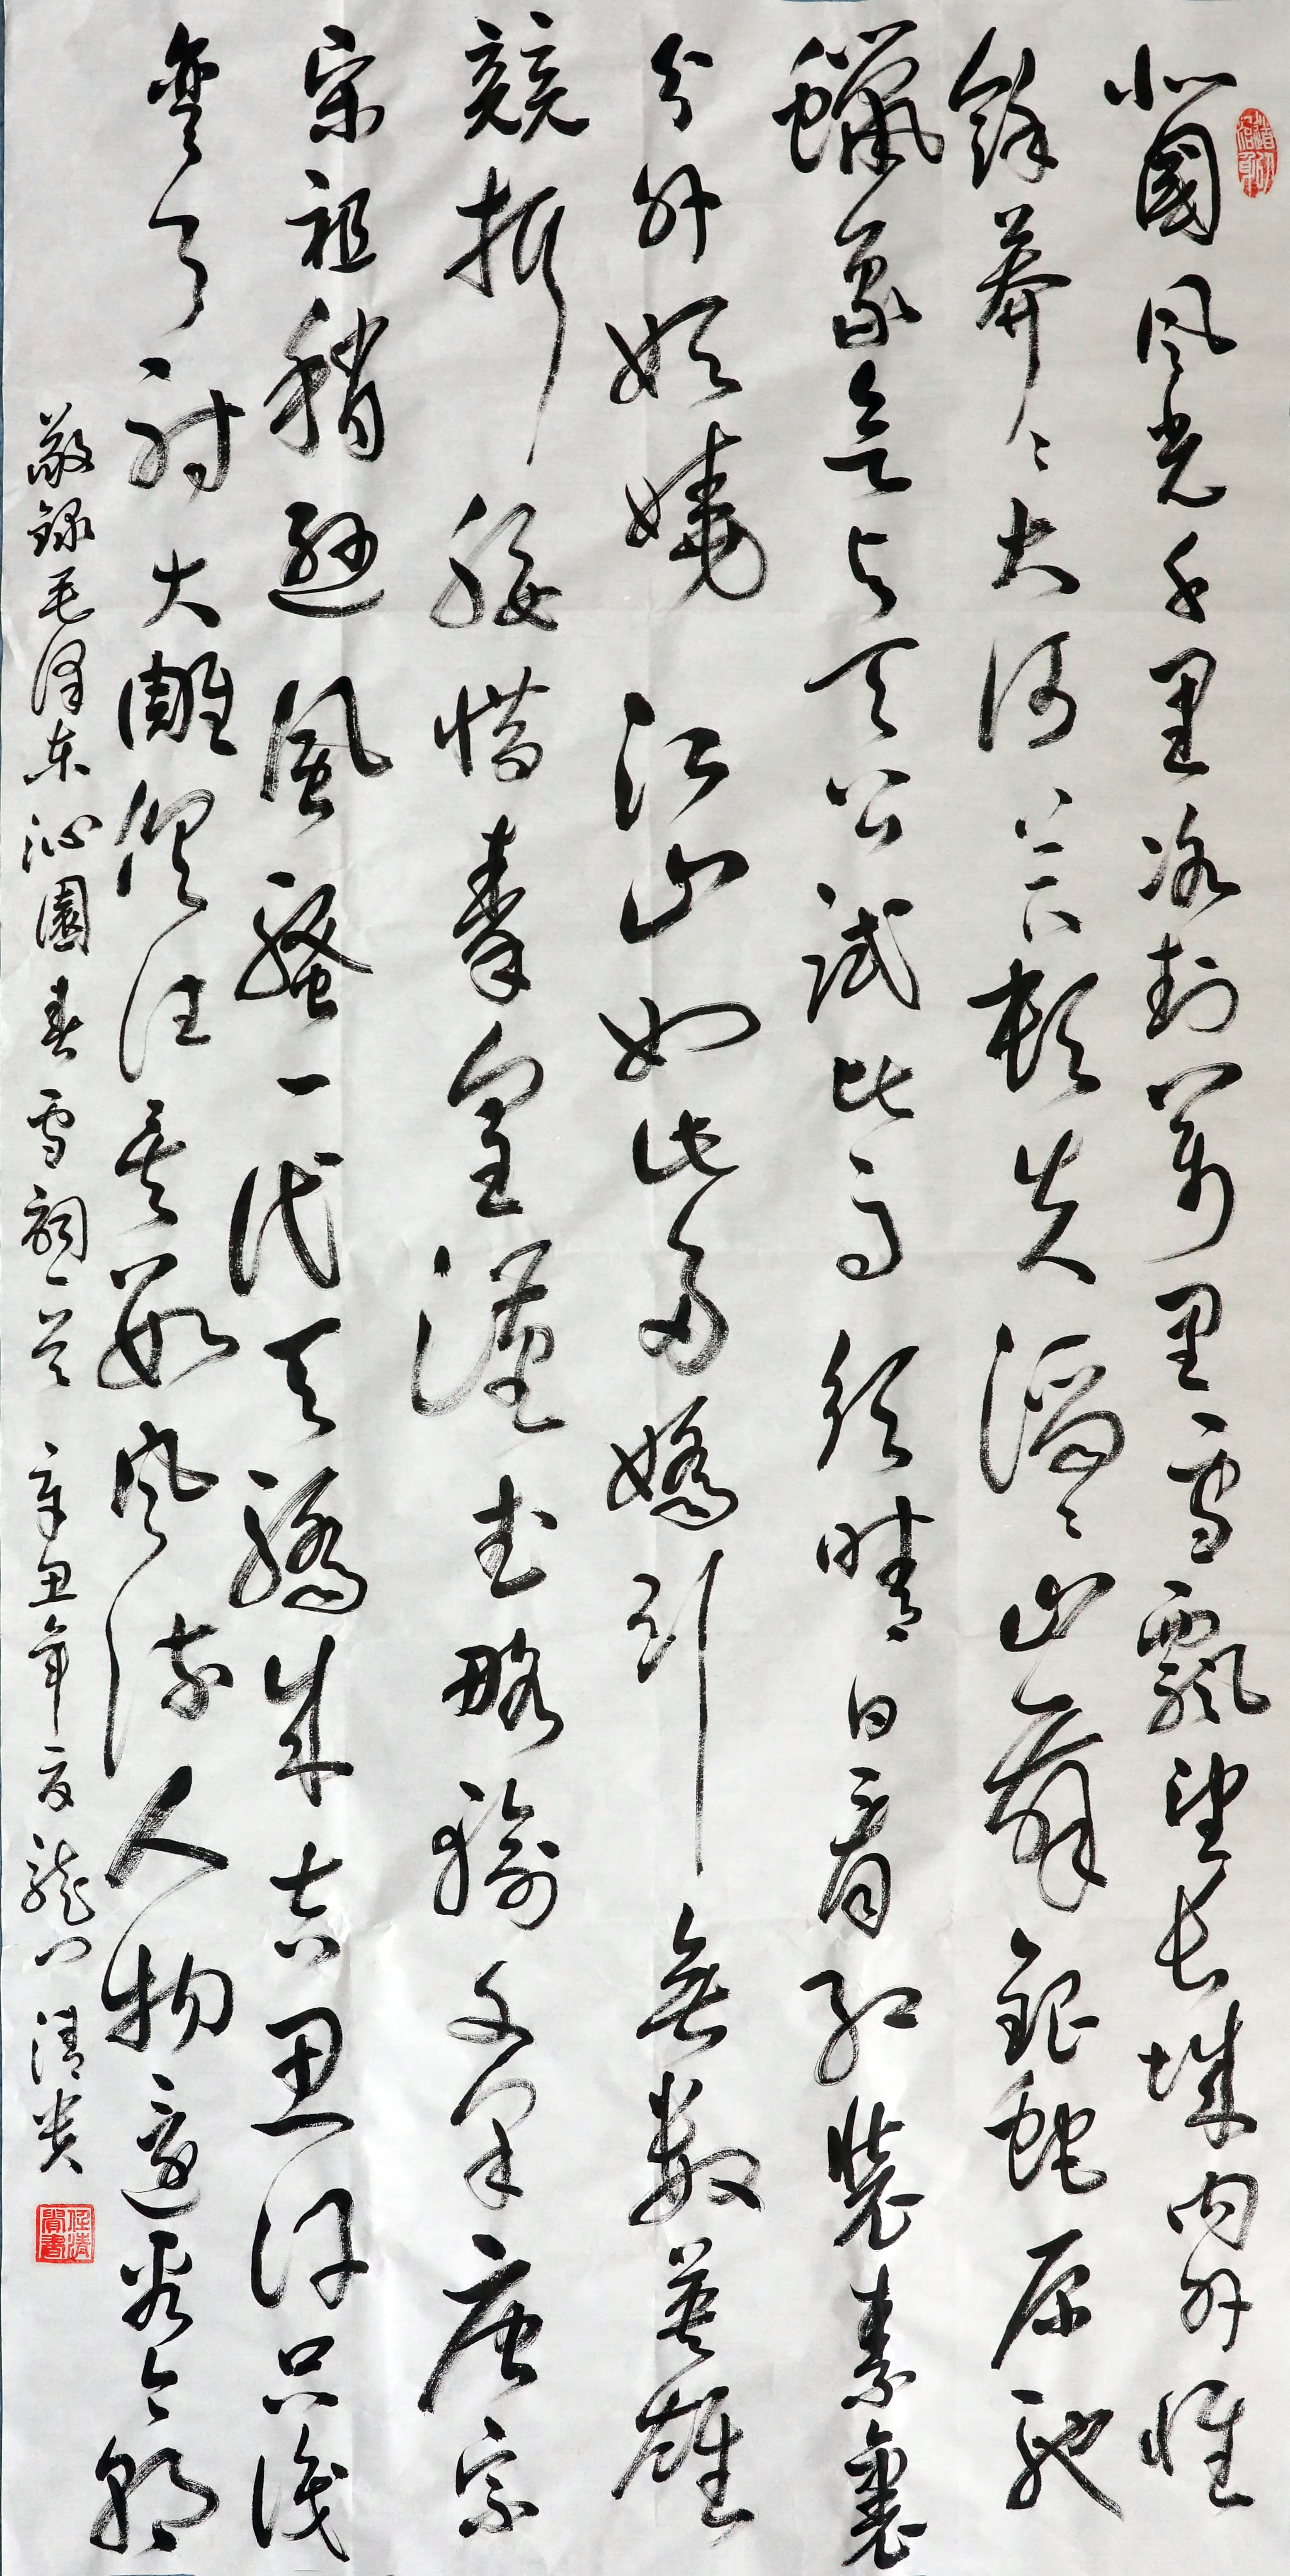 北國风光千里冰封萬里雪飄望长城内外惟
餘莽〻大河上下頓失滔〻山舞銀蛇原馳
蠟象欲与天公試比高須晴日看红裝素裹
分外妖嬈江山如此多嬌引無數英雄
競折腰惜秦皇漢武略输文采唐宗
宋祖稍遜風騷一代天驕成吉思汗只識
弯弓射大雕俱往矣数风流人物還看今朝
敬録毛泽东沁園春雪詞一首 辛丑年夏龍门清贵
任清貴書